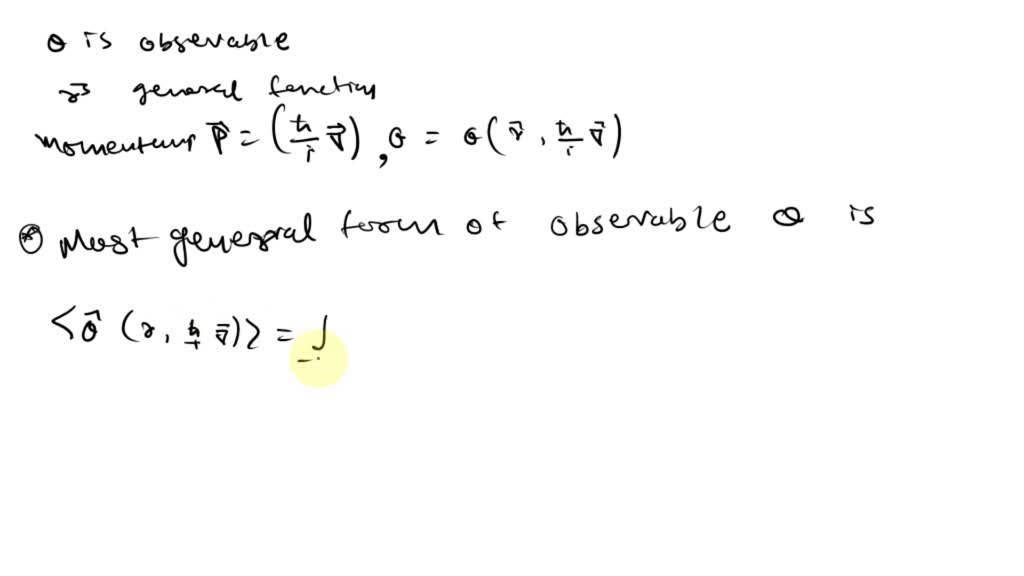 θ is observable
r⃗ general function
momentum P⃗ = (ħ/i ∇⃗), θ = θ(r⃗, ħ/i ∇⃗)
⊛ Most general form of observable θ is
<θ⃗ (r, ħ/i ∇⃗)> = ∫